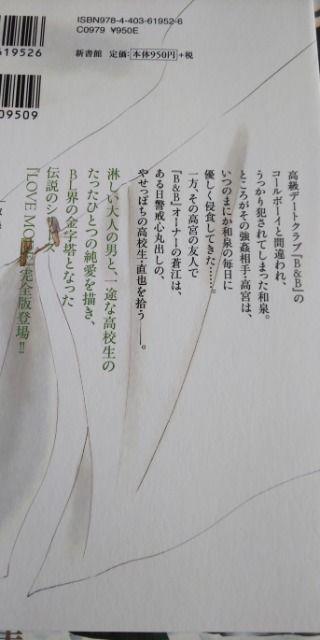 619526
09509
ISBN978-4-403-61952-6
C0979 ¥950E
新書館 定価:本体950円+税
高級デートクラブ『B&B』の
コールボーイと間違われ、
うっかり犯されてしまった和泉。
ところがその強姦相手・高宮は、
いつのまにか和泉の毎日に
優しく侵食してきた……。
一方、その高宮の友人で
『B&B』オーナーの蒼江は、
ある日警戒心丸出しの、
やせっぽちの高校生・直也を拾う――。
淋しい大人の男と、一途な高校生の
たったひとつの純愛を描き、
BL界の金字塔となった
伝説のシリーズ
『LOVE MODE』完全版登場!!